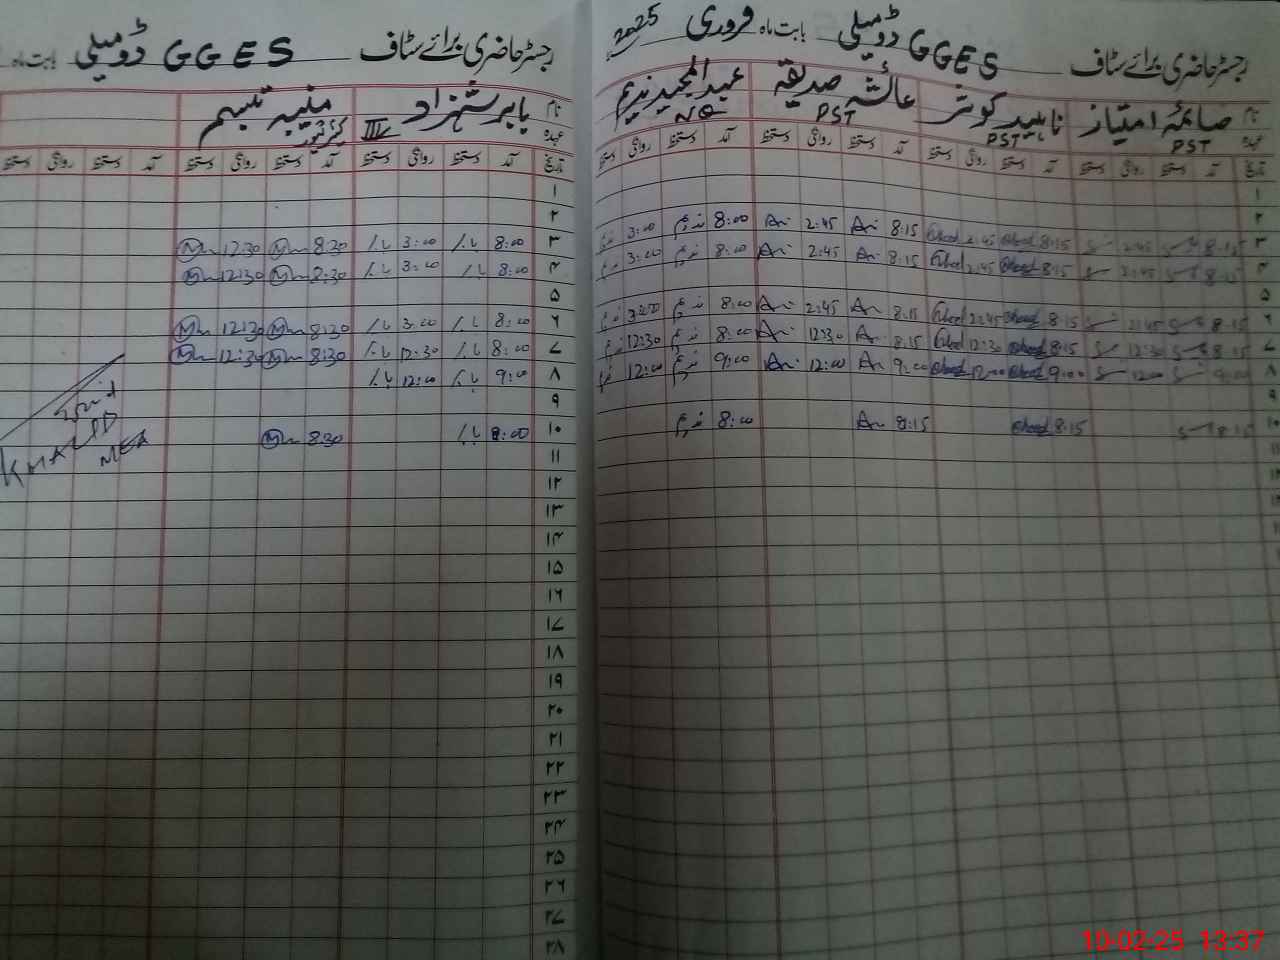 رجسٹر حاضری برائے سٹاف GGES ڈومیلی بابت ماہ فروری 2025
نام صائمہ امتیاز ناہید کوثر عائشہ صدیقہ عبدالمجید ندیم
عہدہ PST PST PST NQ
تاریخ آمد دستخط روانگی دستخط آمد دستخط روانگی دستخط آمد دستخط روانگی دستخط آمد دستخط روانگی دستخط
۱
۲
۳ 8:15 2:45 8:15 2:45 8:15 2:45 8:00 3:00
۴ 8:15 2:45 8:15 2:45 8:15 2:45 8:00 3:00
۵
۶ 8:15 2:45 8:15 2:45 8:15 2:45 8:00 3:00
۷ 8:15 12:30 8:15 12:30 8:15 12:30 8:00 12:30
۸ 9:00 12:00 9:00 12:00 9:00 12:00 9:00 12:00
۹
۱۰ 8:15 8:15 8:15 8:00
رجسٹر حاضری برائے سٹاف GGES ڈومیلی بابت ماہ
نام بابر شہزاد منیبہ تبسم
عہدہ IV کیئر گیور
تاریخ آمد دستخط روانگی دستخط آمد دستخط روانگی دستخط آمد دستخط روانگی دستخط
۱
۲
۳ 8:00 3:00 8:30 12:30
۴ 8:00 3:00 8:30 12:30
۵
۶ 8:00 3:00 8:30 12:30
۷ 8:00 12:30 8:30 12:30
۸ 9:00 12:00
۹
۱۰ 8:00 8:30
۱۱
۱۲
۱۳
۱۴
۱۵
۱۶
۱۷
۱۸
۱۹
۲۰
۲۱
۲۲
۲۳
۲۴
۲۵
۲۶
۲۷
۲۸
MEA
10-02-25 13:37